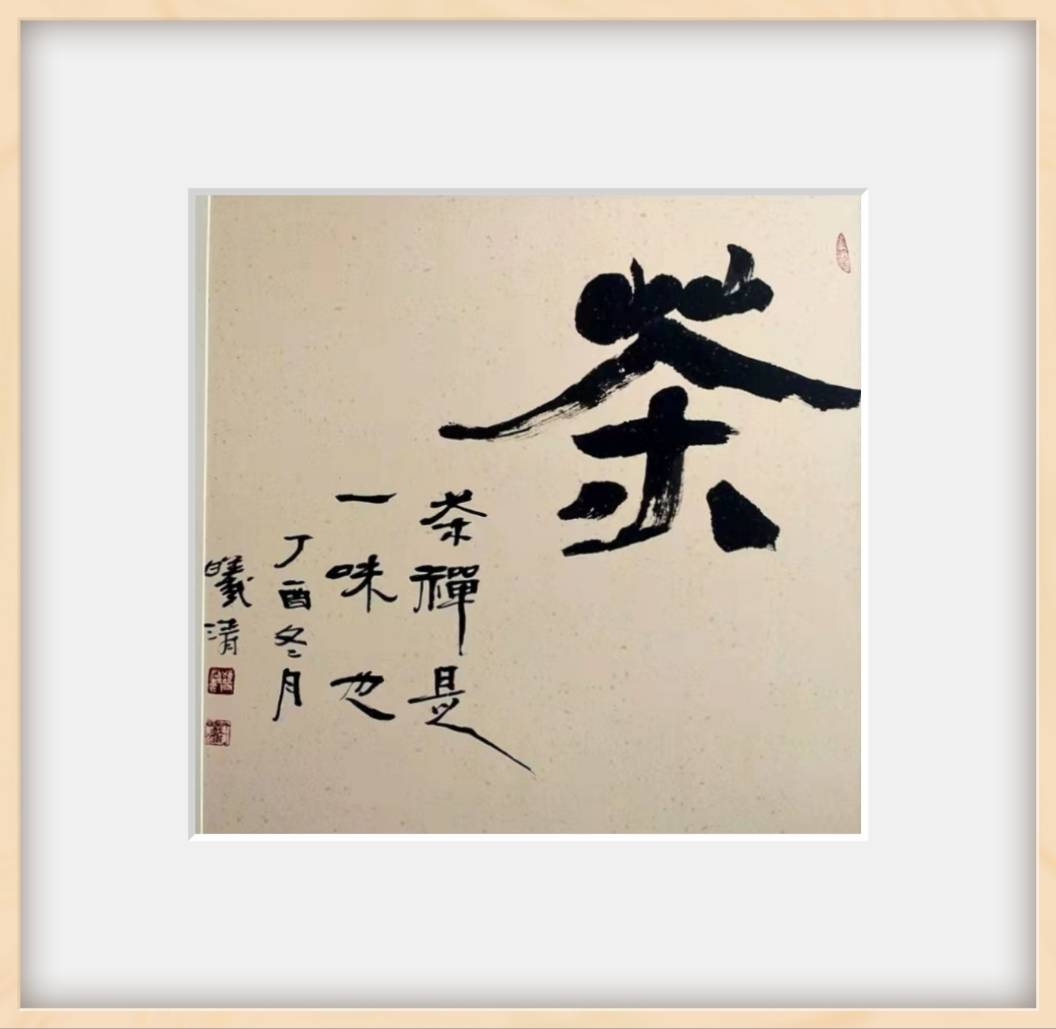 茶
茶禪是
一味也
丁酉冬月
曦清